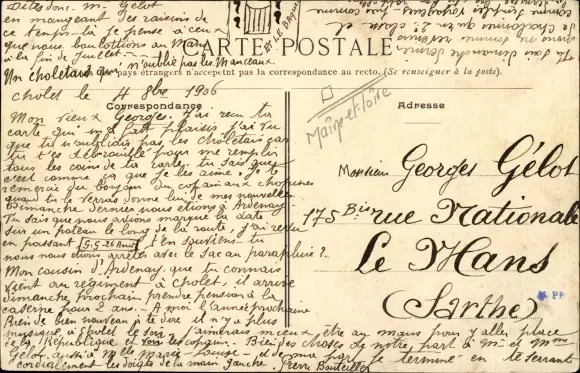 Dites donc. Mr Gélot
en mangeant des raisins de
ce temps-là je pense à ceux
que nous boulottions au Mans
à la fin de Juillet
CARTE POSTALE
Un choletais qui n'oublie pas les Manceaux.
pays étrangers n'acceptent pas la correspondance au recto. (Se renseigner à la poste).
cholet le 4 8bre 1906
Correspondance
Adresse
Maine et Loire
Mon vieux Georges. J'ai reçu ta
carte qui m'a fait plaisir j'ai vu
que tu n'oubliais pas les choletais car
tu t'es débrouillé pour me remplir
tous les coins de ta carte. tu sais que
c'est comme ça que je les aime. Je te
remercie du bonjour du copain aux chopines
quand tu le verras donne lui de mes nouvelles
Dimanche dernier nous étions à Ardenay
Tu sais que nous avions marqué la date
sur un poteau le long de la route, j'ai revu
en passant G.G-26 Aout t'en souviens tu
nous nous étions arrêtés avec le sac au parapluie ?.
Mon cousin d'Ardenay que tu connais
vient au régiment à cholet, il arrive
dimanche prochain prendre pension à la
caserne pour 2 ans. A moi l'année prochaine
Rien de bien nouveau à te dire il n'y a plus
à cholet le soir, j'aimerais mieux être au mans pour y aller place
de la République et voir les copains. Bien des choses de notre part à Mr et Mme
Gélot aussi à Melle Marie-Louise et de ma part je termine en te serrant
cordialement les doigts de la main gauche. Pierre Bouteiller
Monsieur Georges Gélot
175 Bis rue Nationale
Le Mans
(Sarthe)